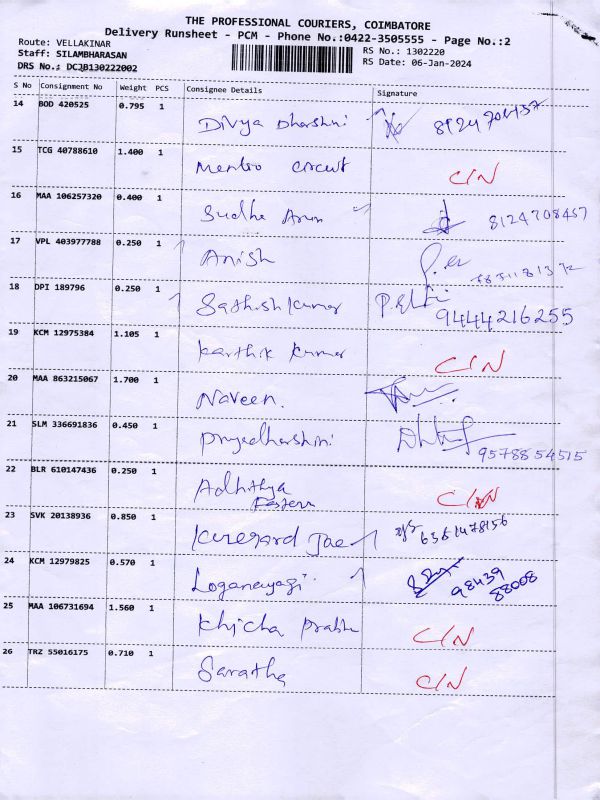 THE PROFESSIONAL COURIERS, COIMBATORE
Delivery Runsheet - PCM - Phone No.:0422-3505555 - Page No.:2
Route: VELLAKINAR
Staff: SILAMBHARASAN RS No.: 1302220
DRS No.: DCJB130222002 RS Date: 06-Jan-2024
S No Consignment No Weight PCS Consignee Details Signature
14 BOD 420525 0.795 1 Divya Dharshni
15 TCG 40788610 1.400 1 circuit C/N
16 MAA 106257320 0.400 1 Sudha Arun 8124708457
17 VPL 403977788 0.250 1 Anish
18 DPI 189796 0.250 1 Sathish Kumar 9444216255
19 KCM 12975384 1.105 1 Karthik Kumar C/N
20 MAA 863215067 1.700 1 Naveen.
21 SLM 336691836 0.450 1 Priyadharshini 9578854515
22 BLR 610147436 0.250 1 Adhithya C/N
23 SVK 20138936 0.850 1
24 KCM 12979825 0.570 1 Loganayagi 98439
88008
25 MAA 106731694 1.560 1 Khicha Prabhu C/N
26 TRZ 55016175 0.710 1 Saratha C/N